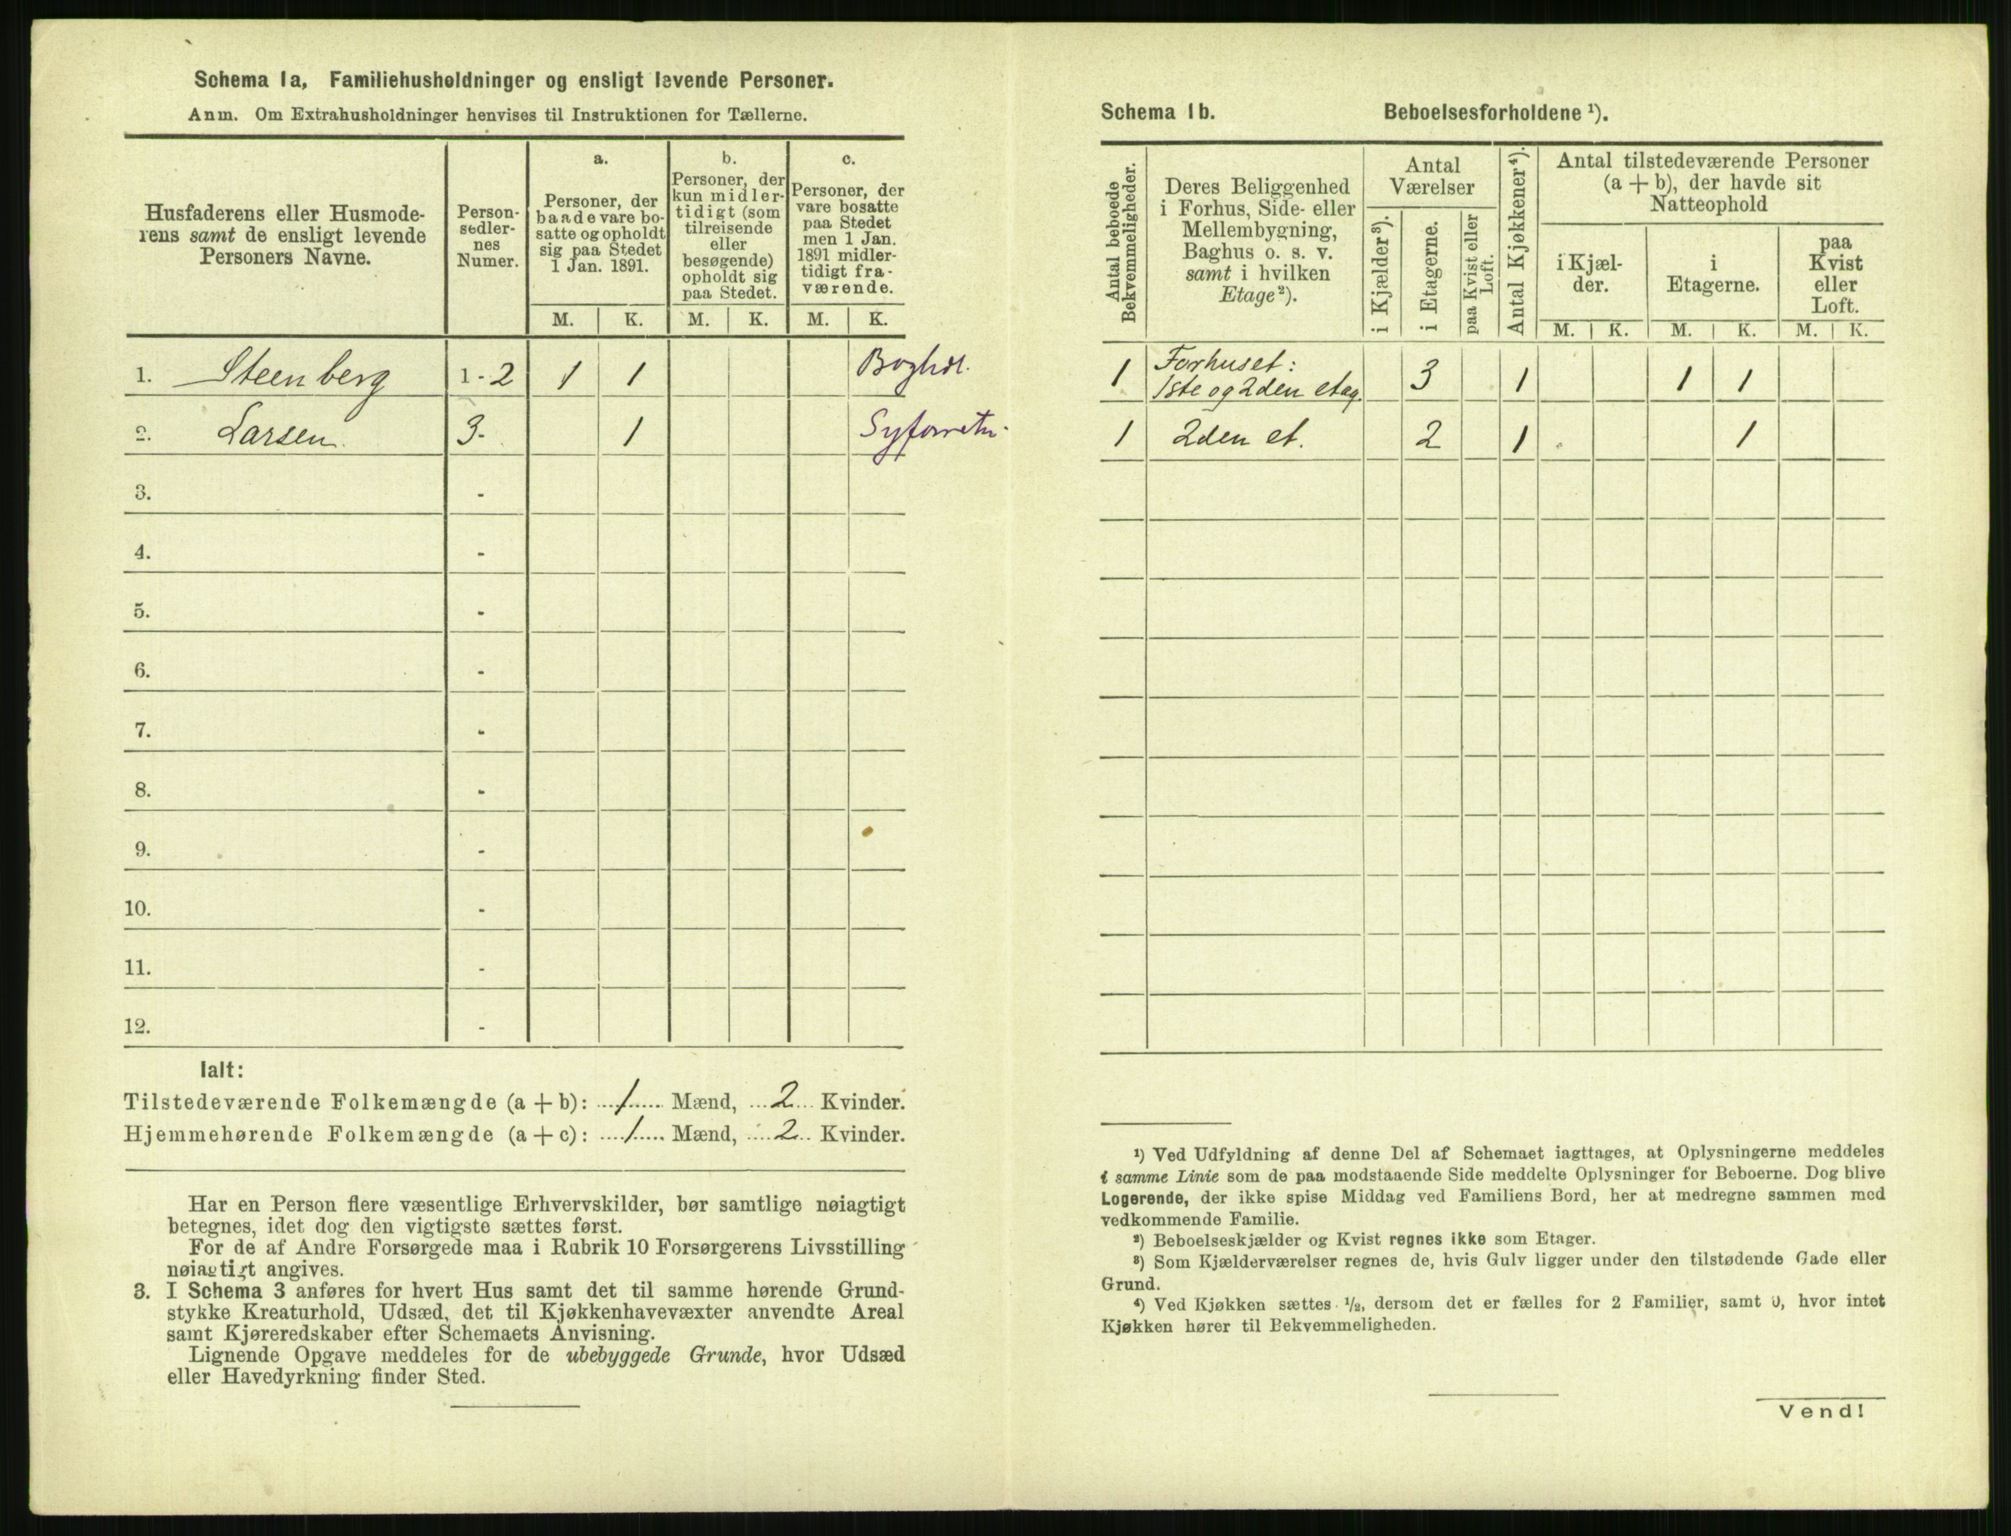 Schema 1a, Familiehusholdninger og ensligt levende Personer.
Anm. Om Extrahusholdninger henvises til Instruktionen for Tællerne.
Husfaderens eller Husmode-
rens samt de ensligt levende
Personers Navne.
Person-
sedler-
nes
Numer.
a.
Personer, der
baade vare bo-
satte og opholdt
sig paa Stedet
1 Jan. 1891.
b.
Personer, der
kun midler-
tidigt (som
tilreisende
eller
besøgende)
opholdt sig
paa Stedet.
c.
Personer, der
vare bosatte
paa Stedet
men 1 Jan.
1891 midler-
tidigt fra-
værende.
M. K. M. K. M. K.
1. Steenberg 1 - 2 1 1 Boghdl.
2. Larsen 3- 1 Syforretn.
3. -
4. -
5. -
6. -
7. -
8. -
9. -
10. -
11. -
12. -
Ialt:
Tilstedeværende Folkemængde (a + b): 1 Mænd, 2 Kvinder.
Hjemmehørende Folkemængde (a + c): 1 Mænd, 2 Kvinder.
Har en Person flere væsentlige Erhvervskilder, bør samtlige nøiagtigt
betegnes, idet dog den vigtigste sættes først.
For de af Andre Forsørgede maa i Rubrik 10 Forsørgerens Livsstilling
nøiagtigt angives.
3. I Schema 3 anføres for hvert Hus samt det til samme hørende Grund-
stykke Kreaturhold, Udsæd, det til Kjøkkenhavevæxter anvendte Areal
samt Kjøreredskaber efter Schemaets Anvisning.
Lignende Opgave meddeles for de ubebyggede Grunde, hvor Udsæd
eller Havedyrkning finder Sted.
Schema 1b. Beboelsesforholdene ¹).
Antal beboede
Bekvemmeligheder.
Deres Beliggenhed
i Forhus, Side- eller
Mellembygning,
Baghus o. s. v.
samt i hvilken
Etage²).
Antal
Værelser
i Kjælder³).
i Etagerne.
paa Kvist eller
Loft.
Antal Kjøkkener⁴).
Antal tilstedeværende Personer
(a + b), der havde sit
Natteophold
i Kjæl-
der.
i
Etagerne.
paa
Kvist
eller
Loft.
M. K. M. K. M. K.
1 Forhuset:
1ste og 2den etag. 3 1 1 1
1 2den et. 2 1 1
¹) Ved Udfyldning af denne Del af Schemaet iagttages, at Oplysningerne meddeles
i samme Linie som de paa modstaaende Side meddelte Oplysninger for Beboerne. Dog blive
Logerende, der ikke spise Middag ved Familiens Bord, her at medregne sammen med
vedkommende Familie.
²) Beboelseskjælder og Kvist regnes ikke som Etager.
³) Som Kjælderværelser regnes de, hvis Gulv ligger under den tilstødende Gade eller
Grund.
⁴) Ved Kjøkken sættes ½, dersom det er fælles for 2 Familier, samt 0, hvor intet
Kjøkken hører til Bekvemmeligheden.
Vend!